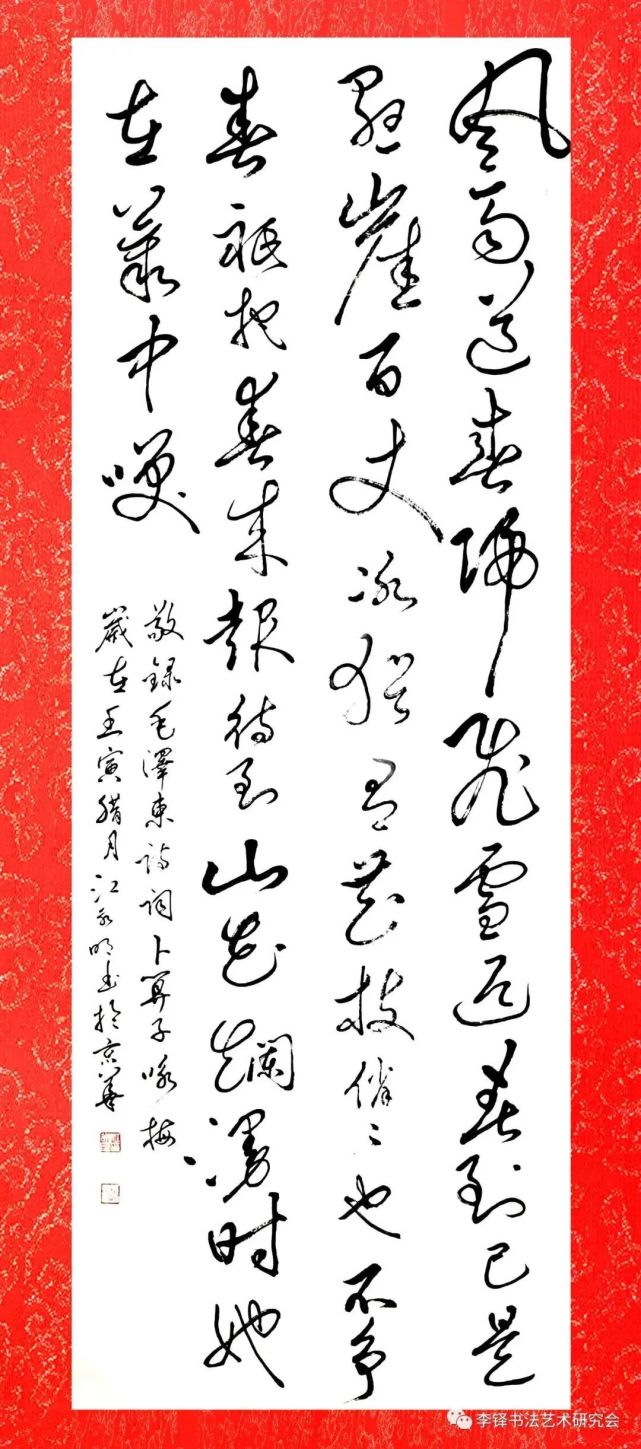 风雨送春归飞雪迎春到已是
悬崖百丈冰犹有花枝俏〻也不争
春祇把春来报待到山花烂漫时她
在丛中笑
敬録毛澤東诗词卜算子咏梅
歲在壬寅腊月江永明书於京華
李铎书法艺术研究会